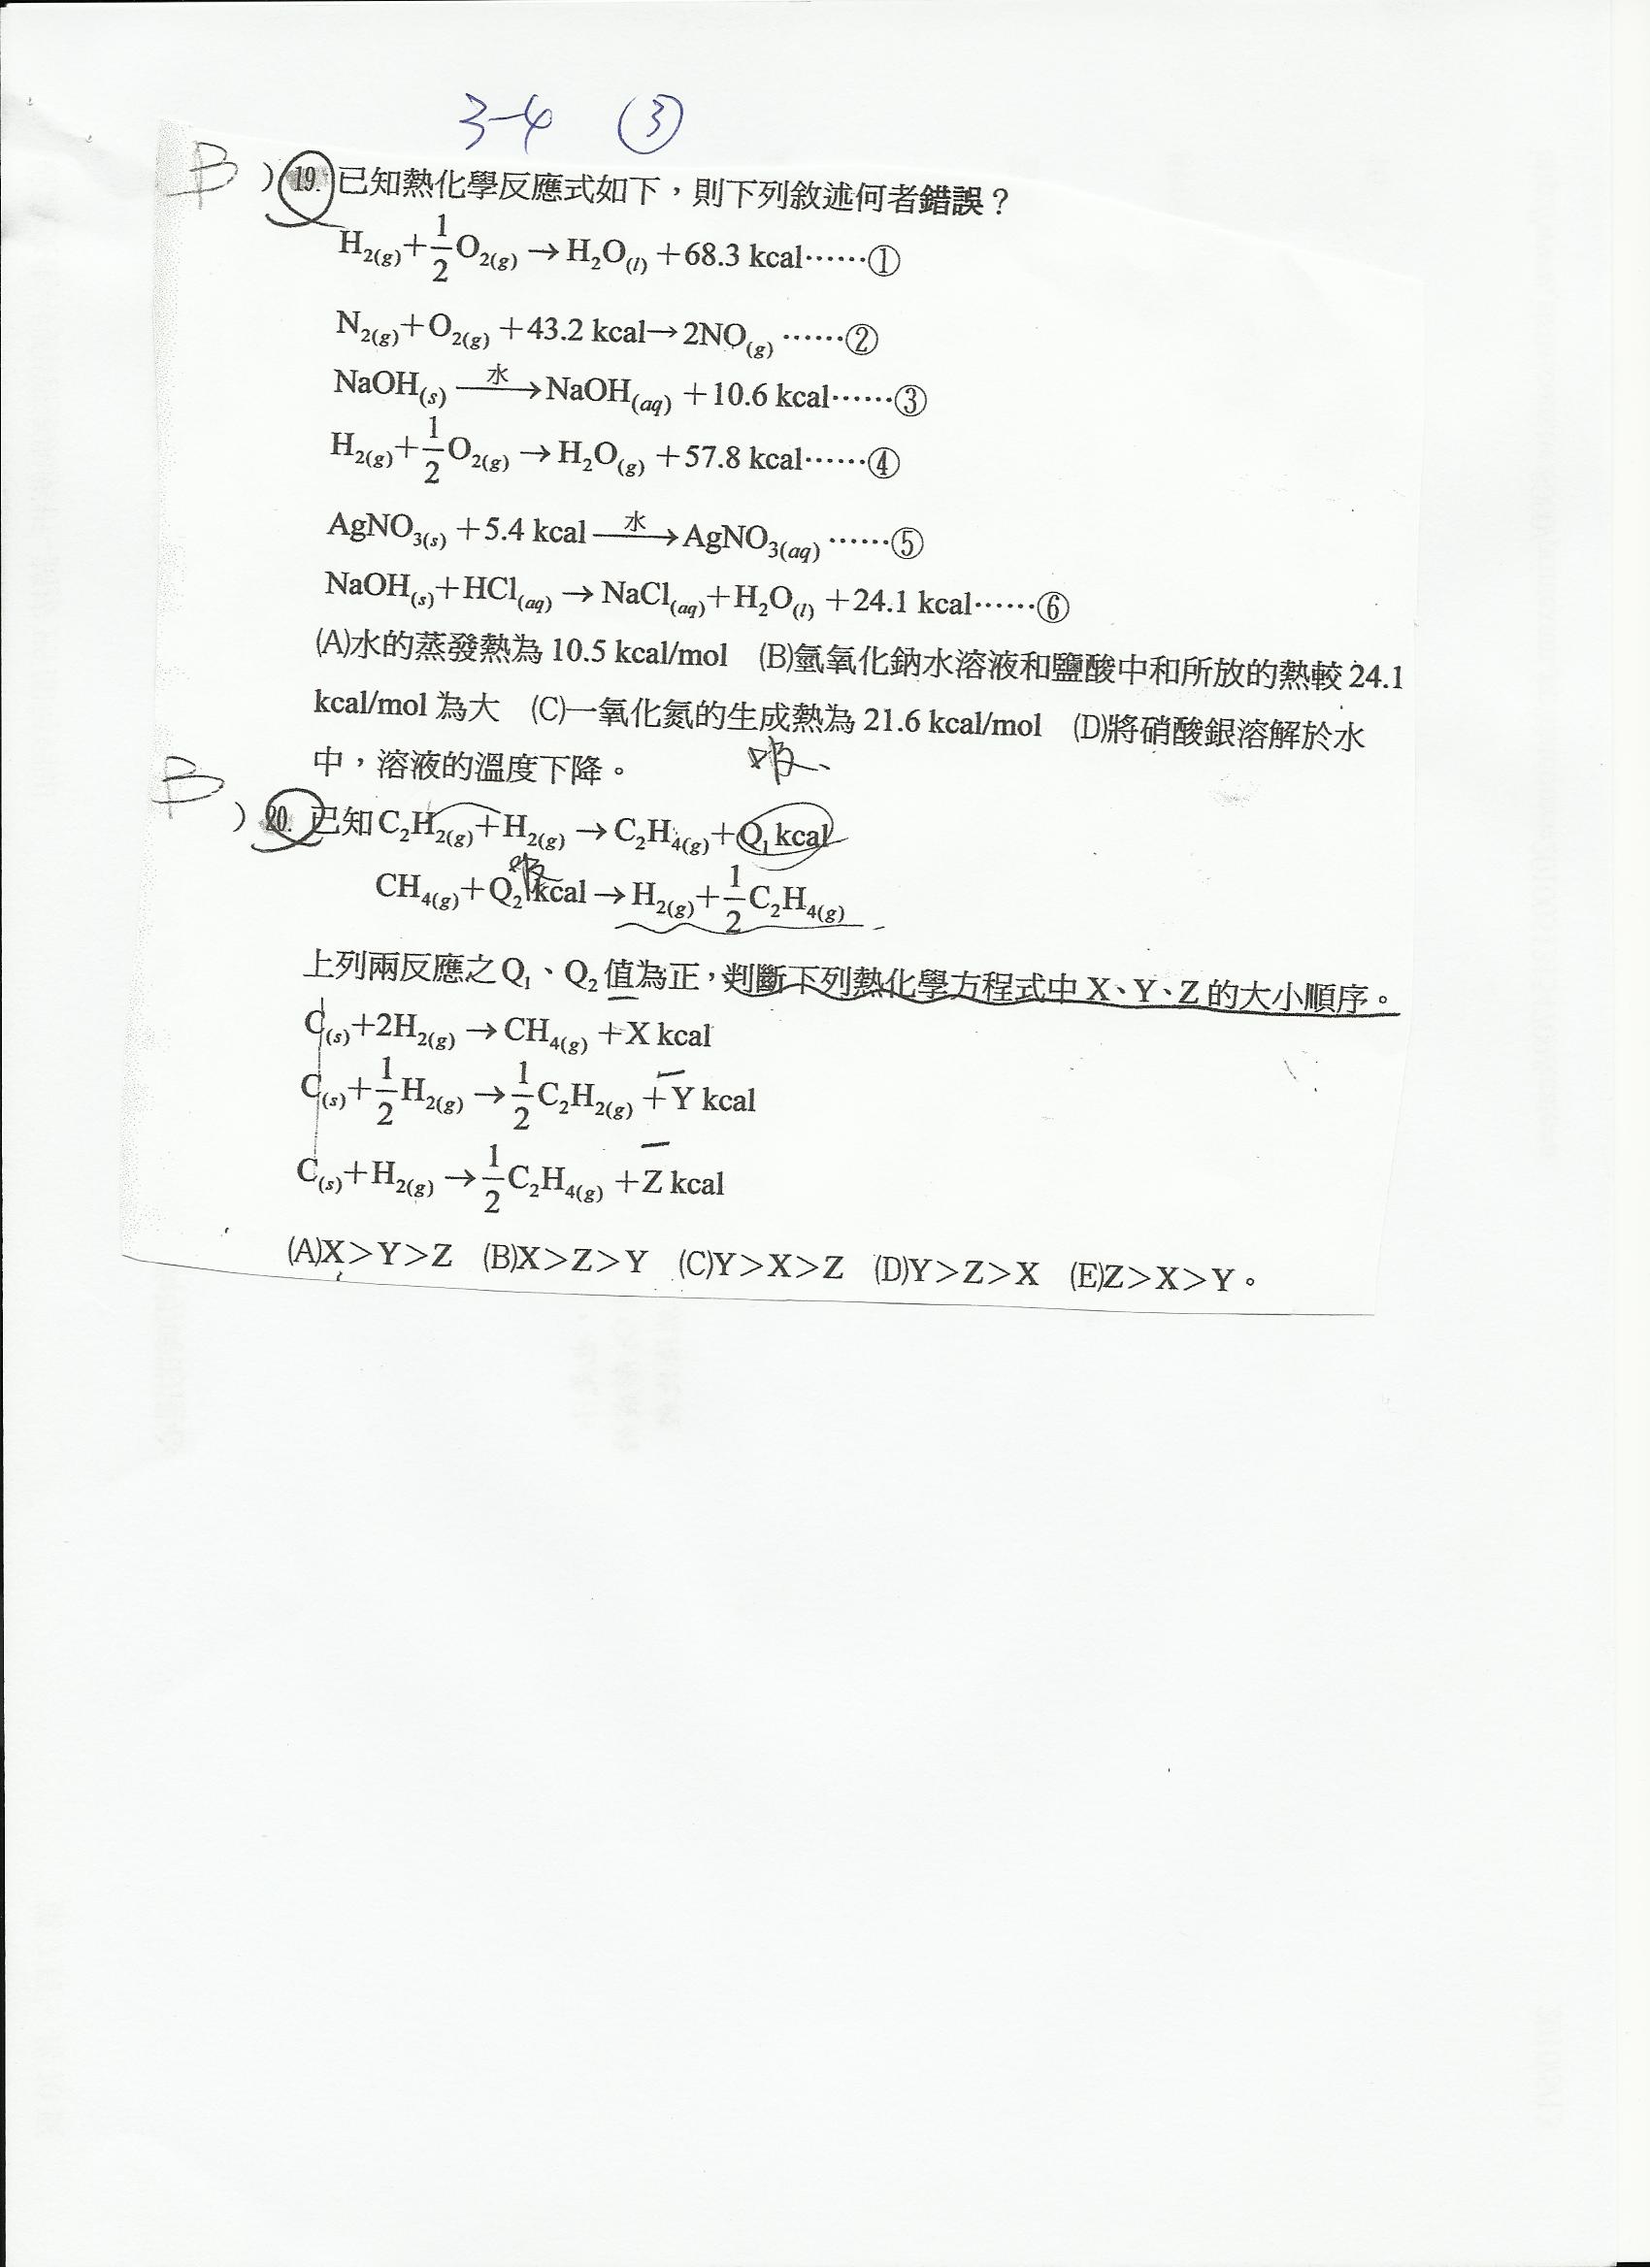 3-4 ③
B )19.已知熱化學反應式如下，則下列敘述何者錯誤？
H₂(g)+1/2O₂(g)→H₂O(l)+68.3 kcal……①
N₂(g)+O₂(g)+43.2 kcal→2NO(g)……②
NaOH(s) 水→ NaOH(aq)+10.6 kcal……③
H₂(g)+1/2O₂(g)→H₂O(g)+57.8 kcal……④
AgNO₃(s)+5.4 kcal 水→ AgNO₃(aq)……⑤
NaOH(s)+HCl(aq)→NaCl(aq)+H₂O(l)+24.1 kcal……⑥
(A)水的蒸發熱為 10.5 kcal/mol (B)氫氧化鈉水溶液和鹽酸中和所放的熱較 24.1
kcal/mol 為大 (C)一氧化氮的生成熱為 21.6 kcal/mol (D)將硝酸銀溶解於水
中，溶液的溫度下降。
吸
B )20.已知C₂H₂(g)+H₂(g)→C₂H₄(g)+Q₁ kcal
吸
CH₄(g)+Q₂ kcal→H₂(g)+1/2C₂H₄(g)
上列兩反應之Q₁、Q₂值為正，判斷下列熱化學方程式中 X、Y、Z 的大小順序。
C(s)+2H₂(g)→CH₄(g)+X kcal
C(s)+1/2H₂(g)→1/2C₂H₂(g)+Y kcal
C(s)+H₂(g)→1/2C₂H₄(g)+Z kcal
(A)X＞Y＞Z (B)X＞Z＞Y (C)Y＞X＞Z (D)Y＞Z＞X (E)Z＞X＞Y。